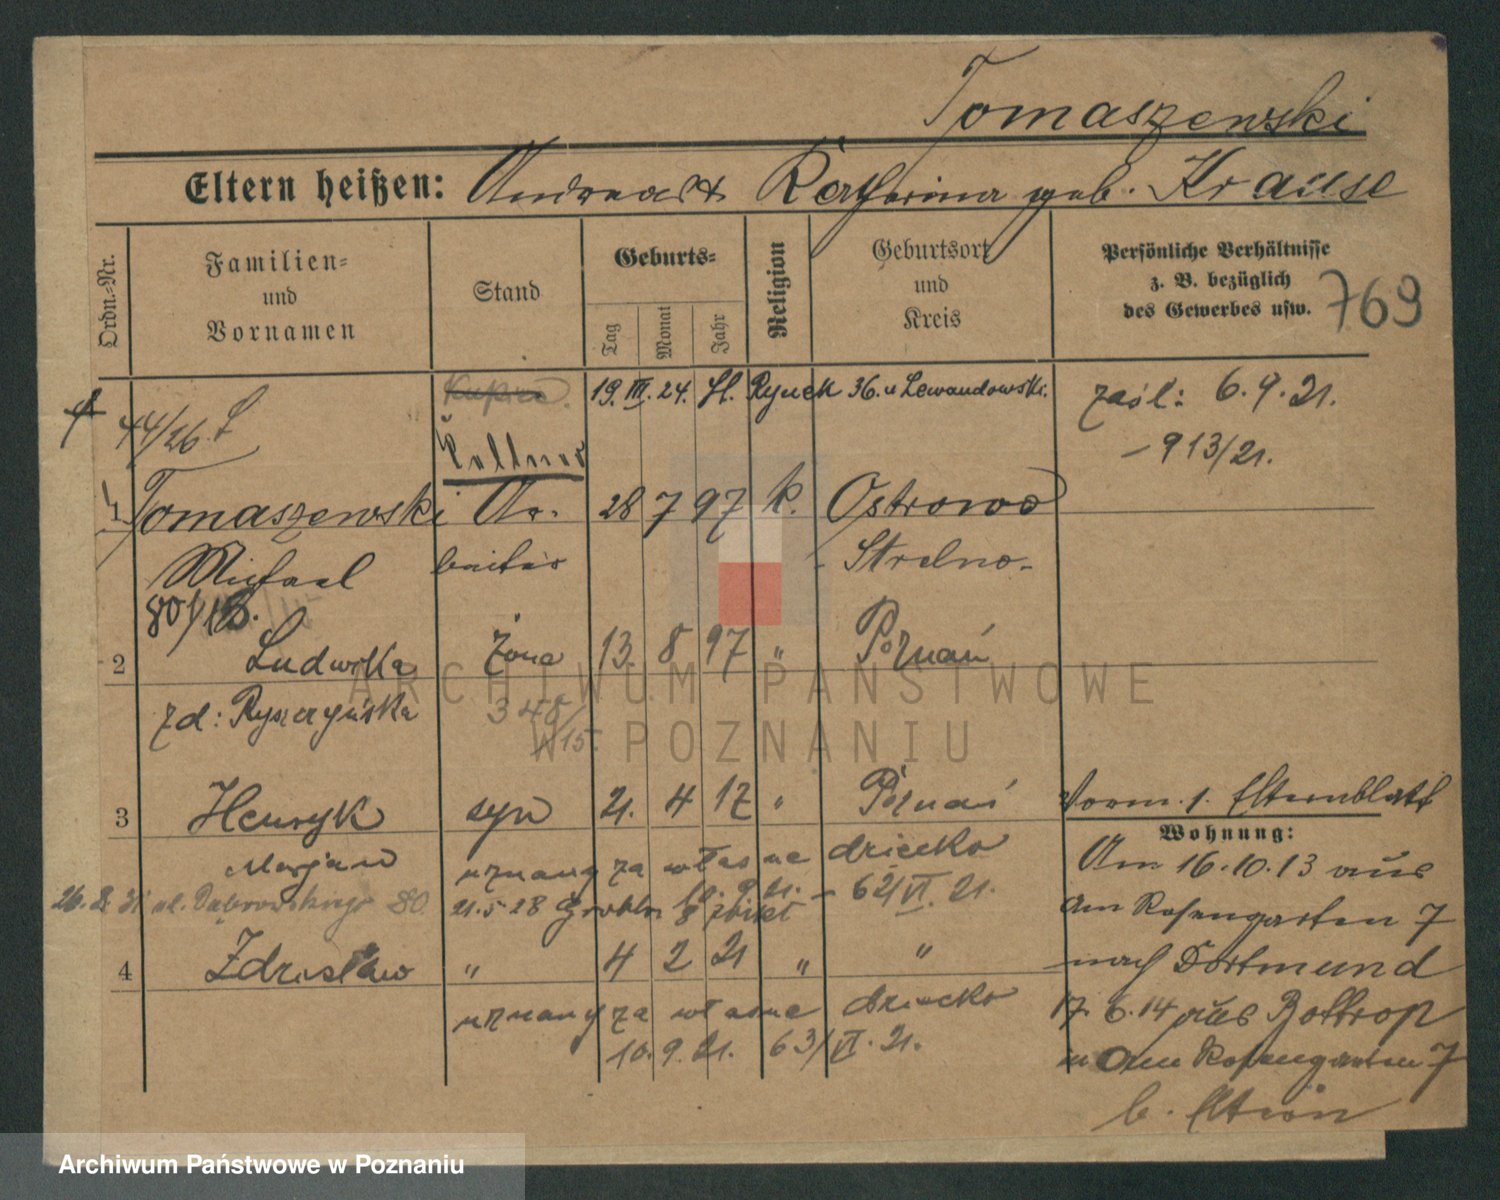 Tomaszewski
Eltern heißen: Andreas & Katharina geb. Krause
Ordn.-Nr.
Familien=
und
Vornamen
Stand
Geburts=
Tag
Monat
Jahr
Religion
Geburtsort
und
Kreis
Persönliche Verhältnisse
z. B. bezüglich
des Gewerbes usw.
769
44/26.
19. III. 24. St. Rynek 36. u Lewandowski.
zaśl: 6.9.21.
– 913/21.
Kellner
1 Tomaszewski Ar- 28 7 97 k. Ostrowo
Michael beiter - Strelno -
80/
2 Ludwika żona 13 8 97 " Poznań
zd: Ryszczyńska 348/15.
3 Henryk syn 21. 4 17 " Poznań
Marjan uznany za własne dziecko
26.2.31 ul. Dąbrowskiego 80 21.5 28 Grobla 8 10.9.21. – 62/VI. 21.
4 Zdzisław " 4 2 21 " "
uznany za własne dziecko
10.9.21. 63/VI. 21.
Vorm. 1. Elternblatt
Wohnung:
Am 16.10.13 aus
Am Rosengarten 7
nach Dortmund
17.6.14 aus Bottrop
in Am Rosengarten 7
b. Eltern
ARCHIWUM PAŃSTWOWE
W POZNANIU
Archiwum Państwowe w Poznaniu